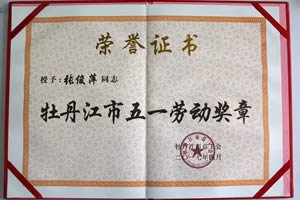 荣誉证书
授予：张俊萍 同志
牡丹江市五一劳动奖章
牡丹江市总工会
二〇一七年四月